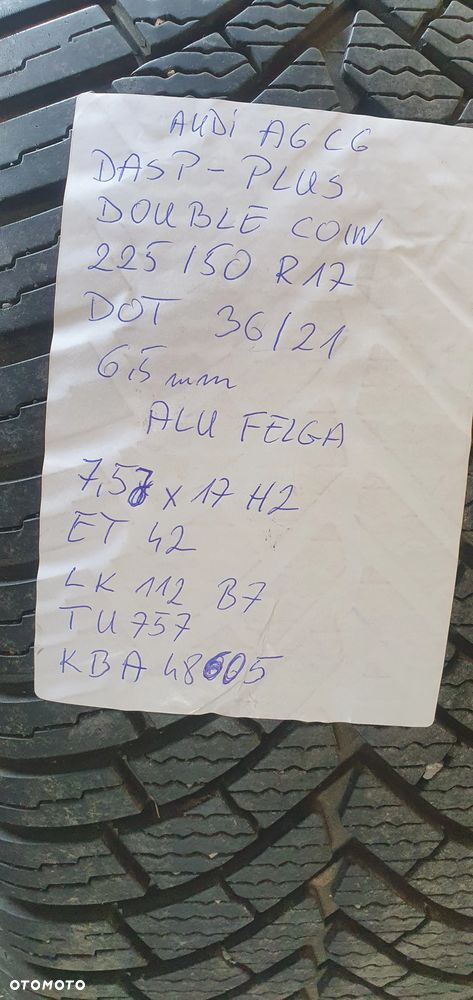 AUDi A6 C6
DASP-PLUS
DOUBLE COIN
225/50 R17
DOT 36/21
6,5 mm
ALU FELGA
7,5J x 17 H2
ET 42
LK 112 B7
TU 757
KBA 48605
OTOMOTO